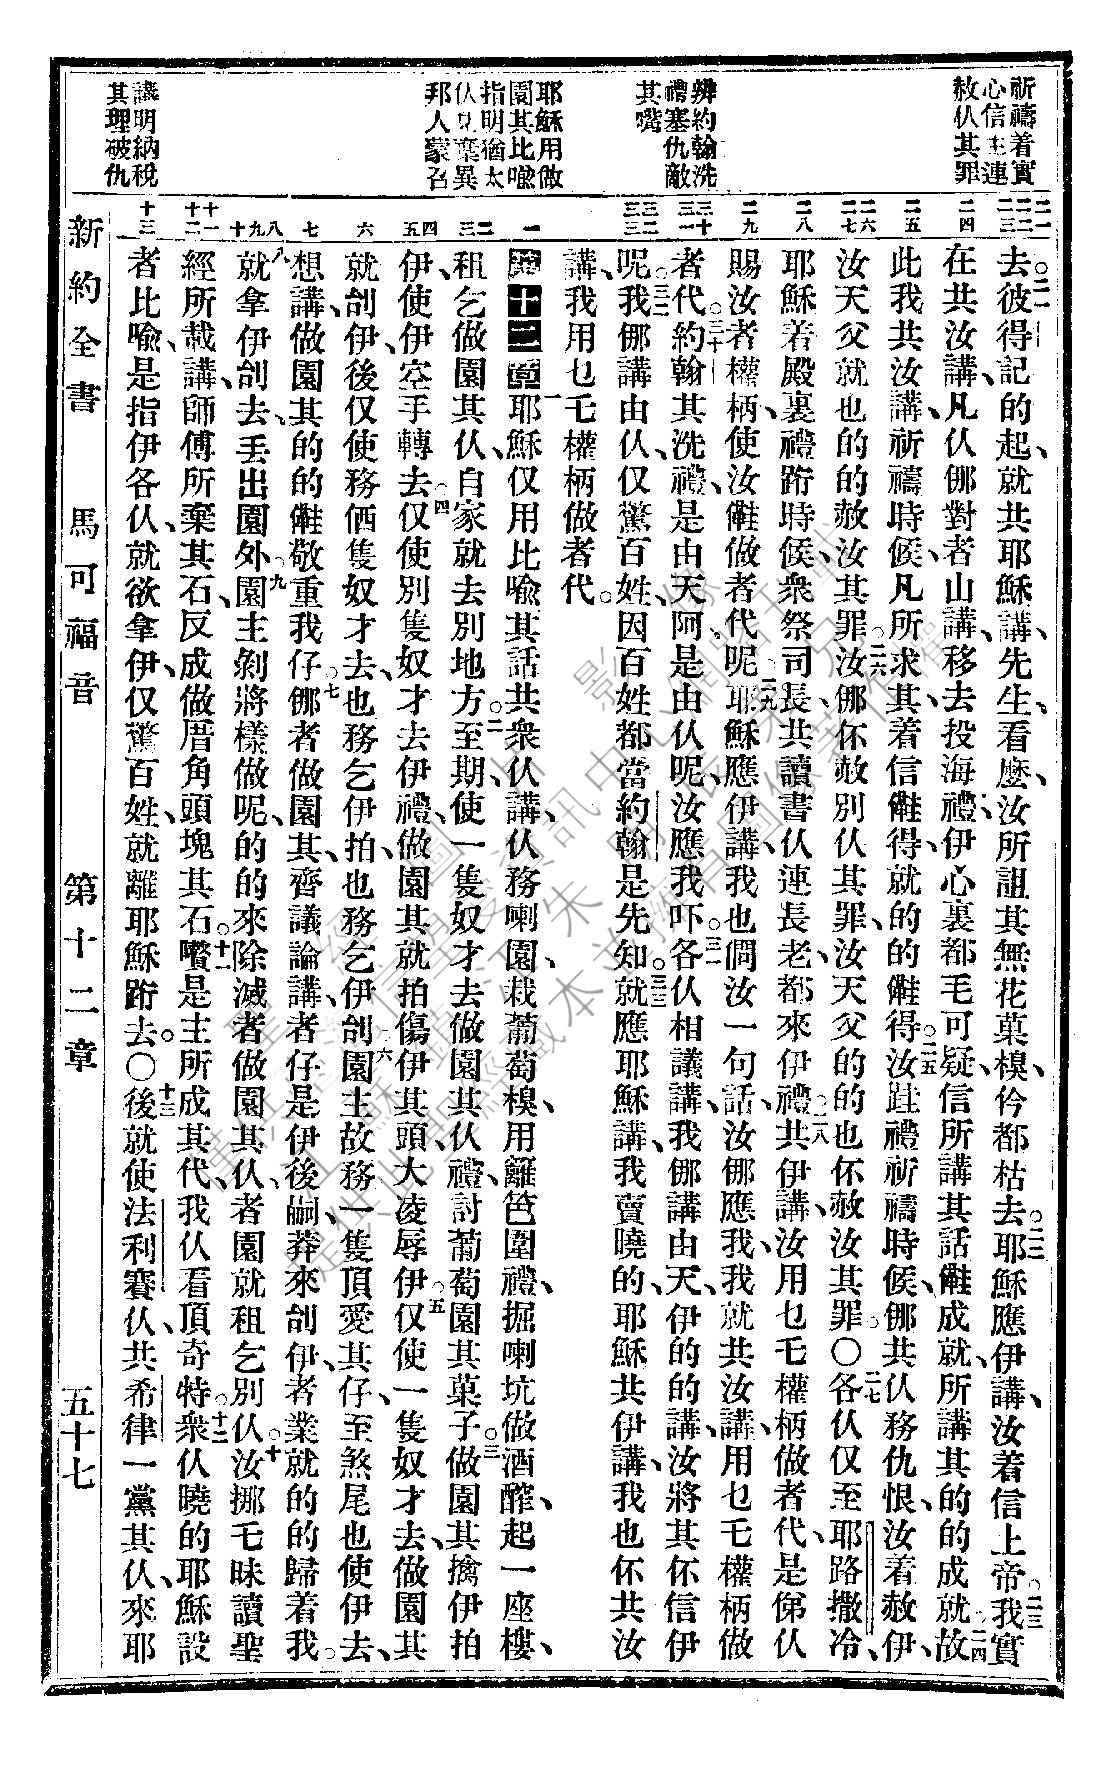 祈禱着實
心信主連
赦仈其罪
辨約翰洗
禮塞仇敵
其嘴
耶穌用做
園其比喻
指明猶太
仈見棄異
邦人蒙召
其理破仇
去。二一彼得記的起、就共耶穌講、先生、看麼、汝所詛其無花菓槼、仱都枯去。二二耶穌應伊講、汝着信上帝。二三我實
在共汝講、凡仈倻對者山講、移去投海禮、伊心裏都毛可疑、信所講其話𠆧成就、所講其的的成就。二四故
此我共汝講、祈禱時候、凡所求其、着信𠆧得、就的的𠆧得。二五汝跬禮祈禱時候、倻共仈務仇恨、汝着赦伊、
汝天父就也的的赦汝其罪。二六汝倻伓赦別仈其罪、汝天父的的也伓赦汝其罪。〇二七各仈仅至耶路撒冷、
耶穌着殿裏禮跲時候、衆祭司長共讀書仈連長老、都來伊禮。二八共伊講、汝用乜乇權柄做者代、是俤仈
賜汝者權柄、使汝𠆧做者代呢。二九耶穌應伊講、我也問汝一句話、汝倻應我、我就共汝講、用乜乇權柄做
者代。三十約翰其洗禮、是由天阿、是由仈呢、汝應我吓。三一各仈相議講、我倻講由天、伊的的講、汝將其伓信伊
呢。三二我倻講由仈、仅驚百姓、因百姓都當約翰是先知。三三就應耶穌講、我賣曉的、耶穌共伊講、我也伓共汝
講、我用乜乇權柄做者代。
第十二章一耶穌仅用比喻其話共衆仈講、仈務喇園、栽葡萄槼、用籬笆圍禮、掘喇坑、做酒醡、起一座樓、
租乞做園其仈、自家就去別地方。二至期、使一隻奴才、去做園其仈禮、討葡萄園其菓子。三做園其擒伊拍
伊、使伊空手轉去。四仅使別隻奴才去伊禮、做園其就拍傷伊其頭、大凌辱伊。五仅使一隻奴才去、做園其
就刣伊、後仅使務価隻奴才去、也務乞伊拍、也務乞伊刣。六園主故務一隻頂愛其仔、至煞尾、也使伊去、
想講、做園其的的𠆧敬重我仔。七倻者做園其、齊議論講、者仔是伊後嗣、莽來刣伊、者業就的的歸着我。
八就拿伊刣去、丟出園外。九園主剝將樣做呢、的的來除滅者做園其仈、者園就租乞別仈。十汝挪乇昧讀聖
經所載講、師傅所棄其石、反成做厝角頭塊其石。十一嚽是主所成其代、我仈看頂奇特。十二衆仈曉的耶穌設
者比喻、是指伊各仈、就欲拿伊、仅驚百姓、就離耶穌跲去。〇十三後就使法利賽仈、共希律一黨其仈、來耶
新約全書　馬可福音　第十二章　五十七